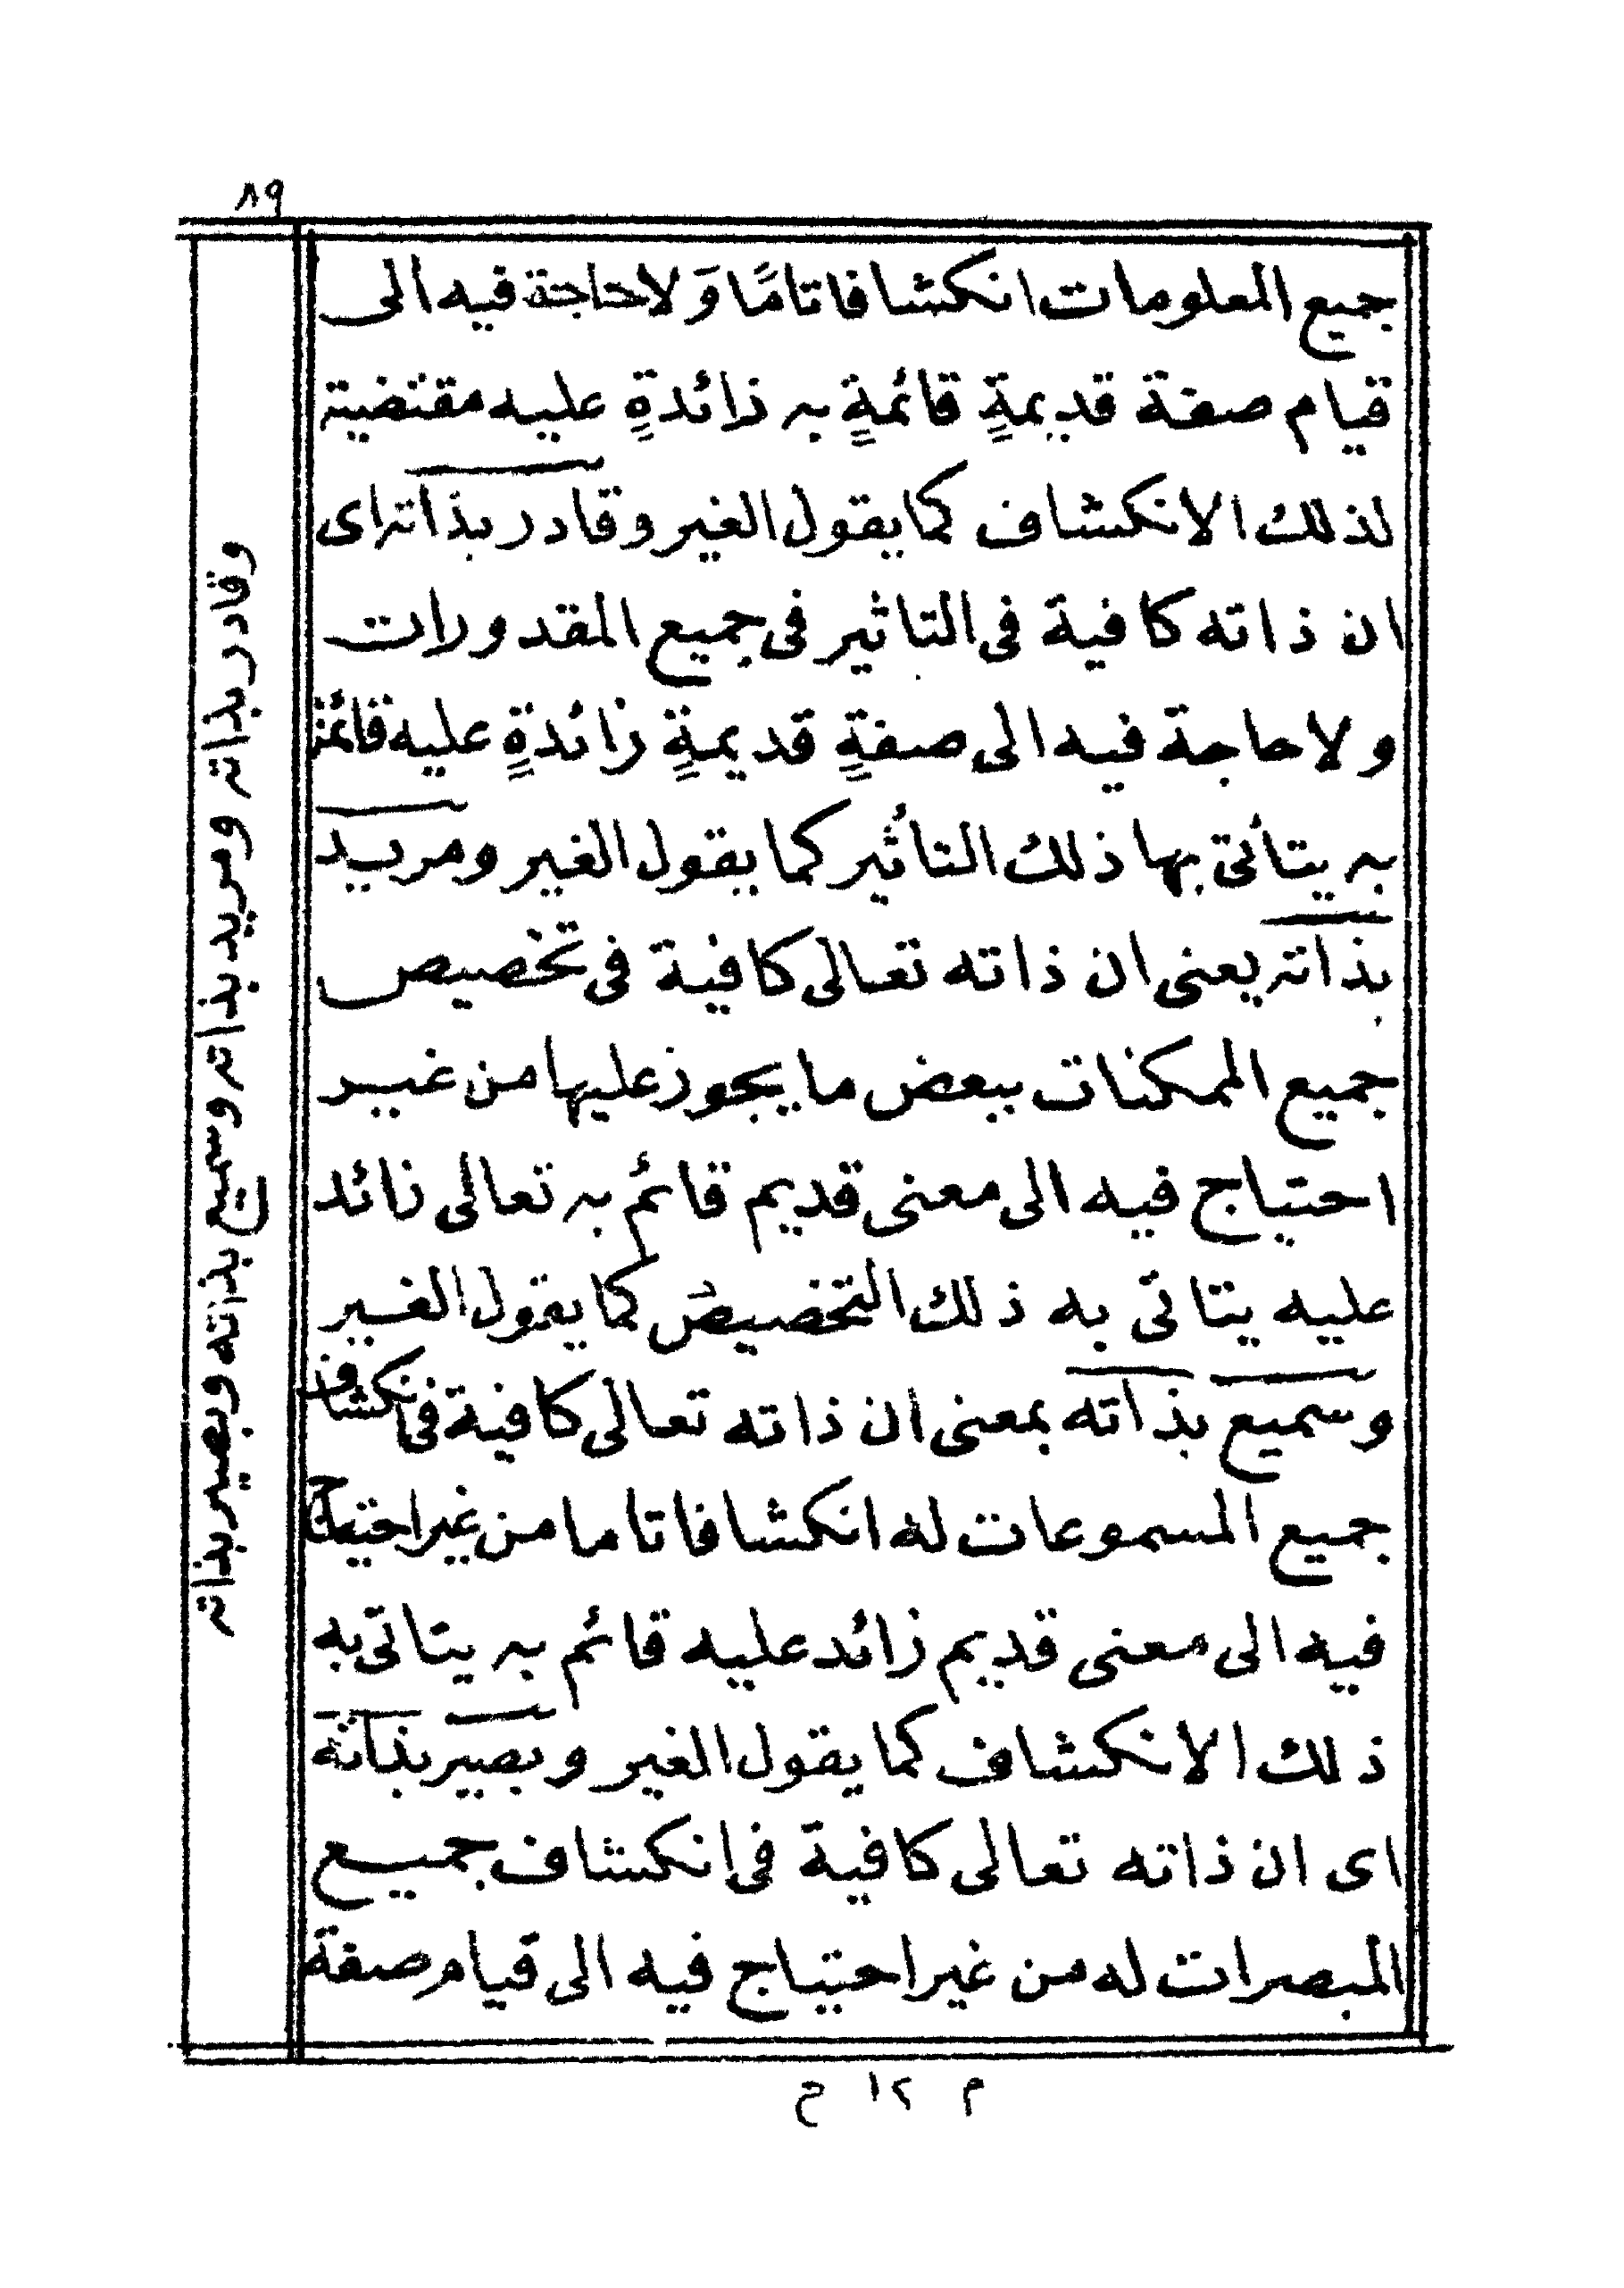 ٨٩
جميع المعلومات انكشافا تامًا وَلاحاجة فيه الى
قيام صفة قديمةٍ قائمةٍ به زائدةٍ عليه مقتضية
لذلك الانكشاف كما يقول الغير وقادر بذاته اى
ان ذاته كافية فى التاثير فى جميع المقدورات
ولاحاجة فيه الى صفةٍ قديمةٍ زائدةٍ عليه قائمة
به يتأتى بها ذلك التأثير كما يقول الغير ومريد
بذاته يعنى ان ذاته تعالى كافية فى تخصيص
جميع الممكنات ببعض ما يجوز عليها من غير
احتياج فيه الى معنى قديم قائم به تعالى زائد
عليه يتاتى به ذلك التخصيص كما يقول الغير
وسميع بذاته بمعنى ان ذاته تعالى كافية فى انكشاف
جميع المسموعات له انكشافا تاما من غير احتياج
فيه الى معنى قديم زائد عليه قائم به يتاتى به
ذلك الانكشاف كما يقول الغير وبصير بذاته
اى ان ذاته تعالى كافية فى إنكشاف جميع
المبصرات له من غير احتياج فيه الى قيام صفة
وقادر بذاته ومريد بذاته وسميع بذاته وبصير بذاته
م ١٢ ح